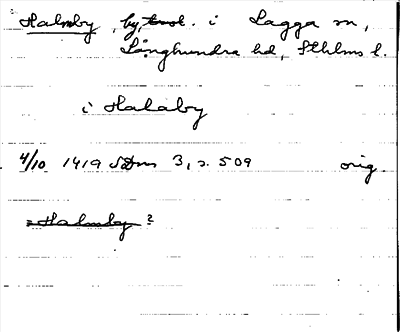 Halmby, by, i Lagga sn,
Långhundra hd, Sthlms l.
i Halaby
4/10 1419 SDns 3, s. 509 orig.
= Halmby ?